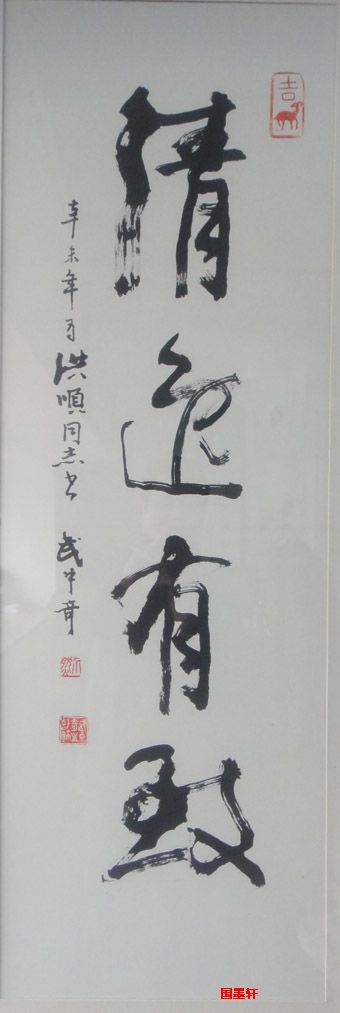 清逸有致
辛未年为洪順同志书 武中奇
吉
国墨轩